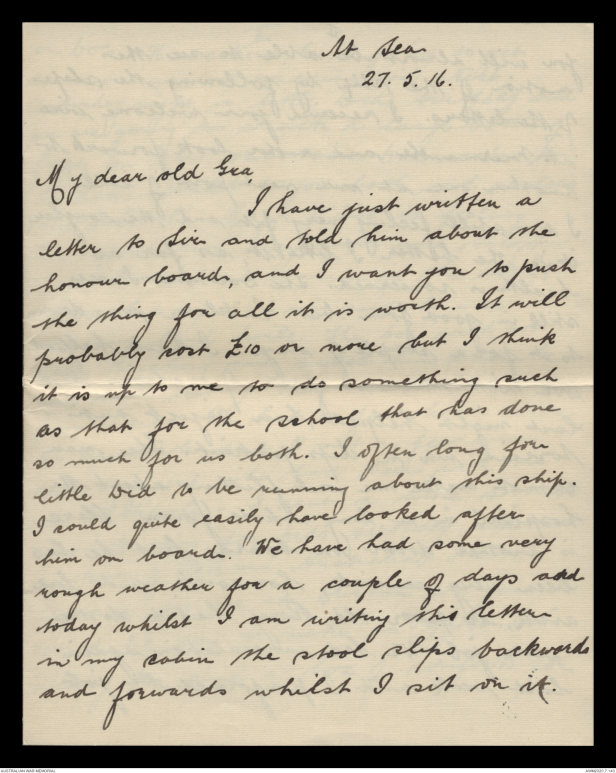 At Sea
27. 5. 16.
My dear old Gra,
I have just written a
letter to Sir and told him about the
honour board, and I want you to push
the thing for all it is worth. It will
probably cost £10 or more but I think
it is up to me to do something such
as that for the school that has done
so much for us both. I often long for
little Did to be running about this ship.
I could quite easily have looked after
him on board. We have had some very
rough weather for a couple of days and
today whilst I am writing this letter
in my cabin the stool slips backwards
and forwards whilst I sit on it.
AUSTRALIAN WAR MEMORIAL